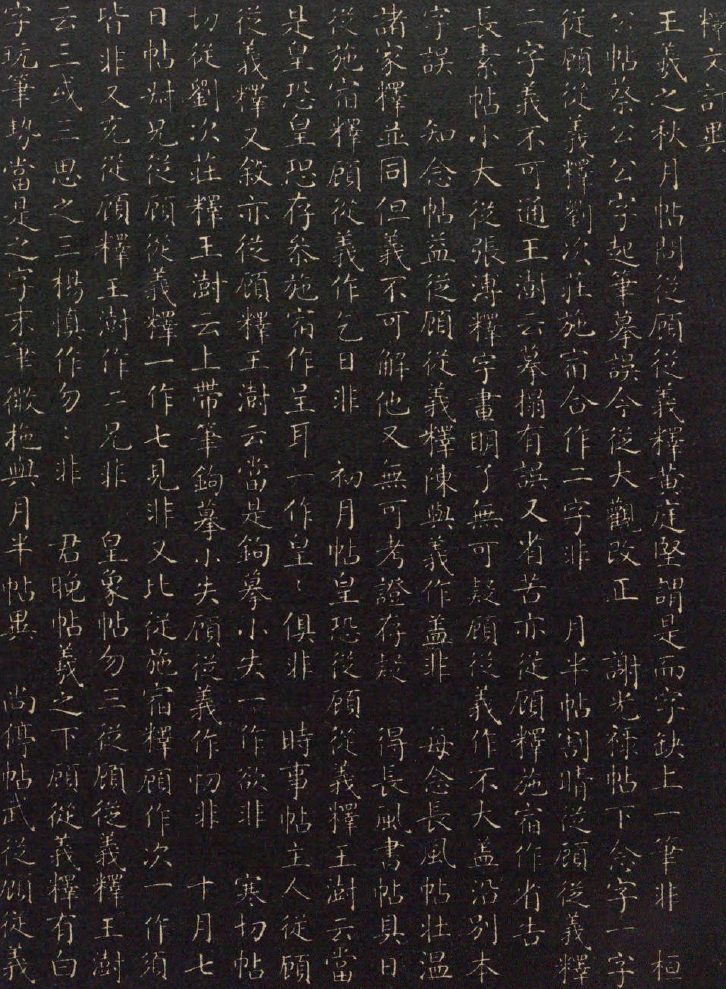 釋文訂異
王羲之秋月帖問從顧從義釋黃庭堅謂是而字缺上一筆非　桓
公帖蔡公公字起筆摹誤今從大觀改正　謝光祿帖下念字一字
從顧從義釋劉次莊施宿合作二字非　月半帖割晴從顧從義釋
二字義不可通王澍云摹搨有誤又省苦亦從顧釋施宿作省告
長素帖小大從張溥釋字畫明了無可疑顧從義作不大蓋沿別本
字誤　知念帖益從顧從義釋陳與義作蓋非　毋念長風帖壯溫
諸家釋並同但義不可解他又無可考證存疑　得長風書帖具日
從施宿釋顧從義作乞日非　初月帖皇恐從顧從義釋王澍云當
是皇恐皇恐存參施宿作呈耳一作皇〻俱非　時事帖主人從顧
從義釋又敘亦從顧釋王澍云當是鉤摹小失一作欲非　寒切帖
切從劉次莊釋王澍云上帶筆鉤摹小失顧從義作忉非　十月七
日帖姊兄從顧從義釋一作七見非又比從施宿釋顧作次一作須
皆非又充從顧釋王澍作二兄非　皇象帖勿三從顧從義釋王澍
云三或三思之三楊慎作勿〻非　君晚帖羲之下顧從義釋有白
字玩筆勢當是之字末筆微拖與月半帖異　尚停帖武從顧從義